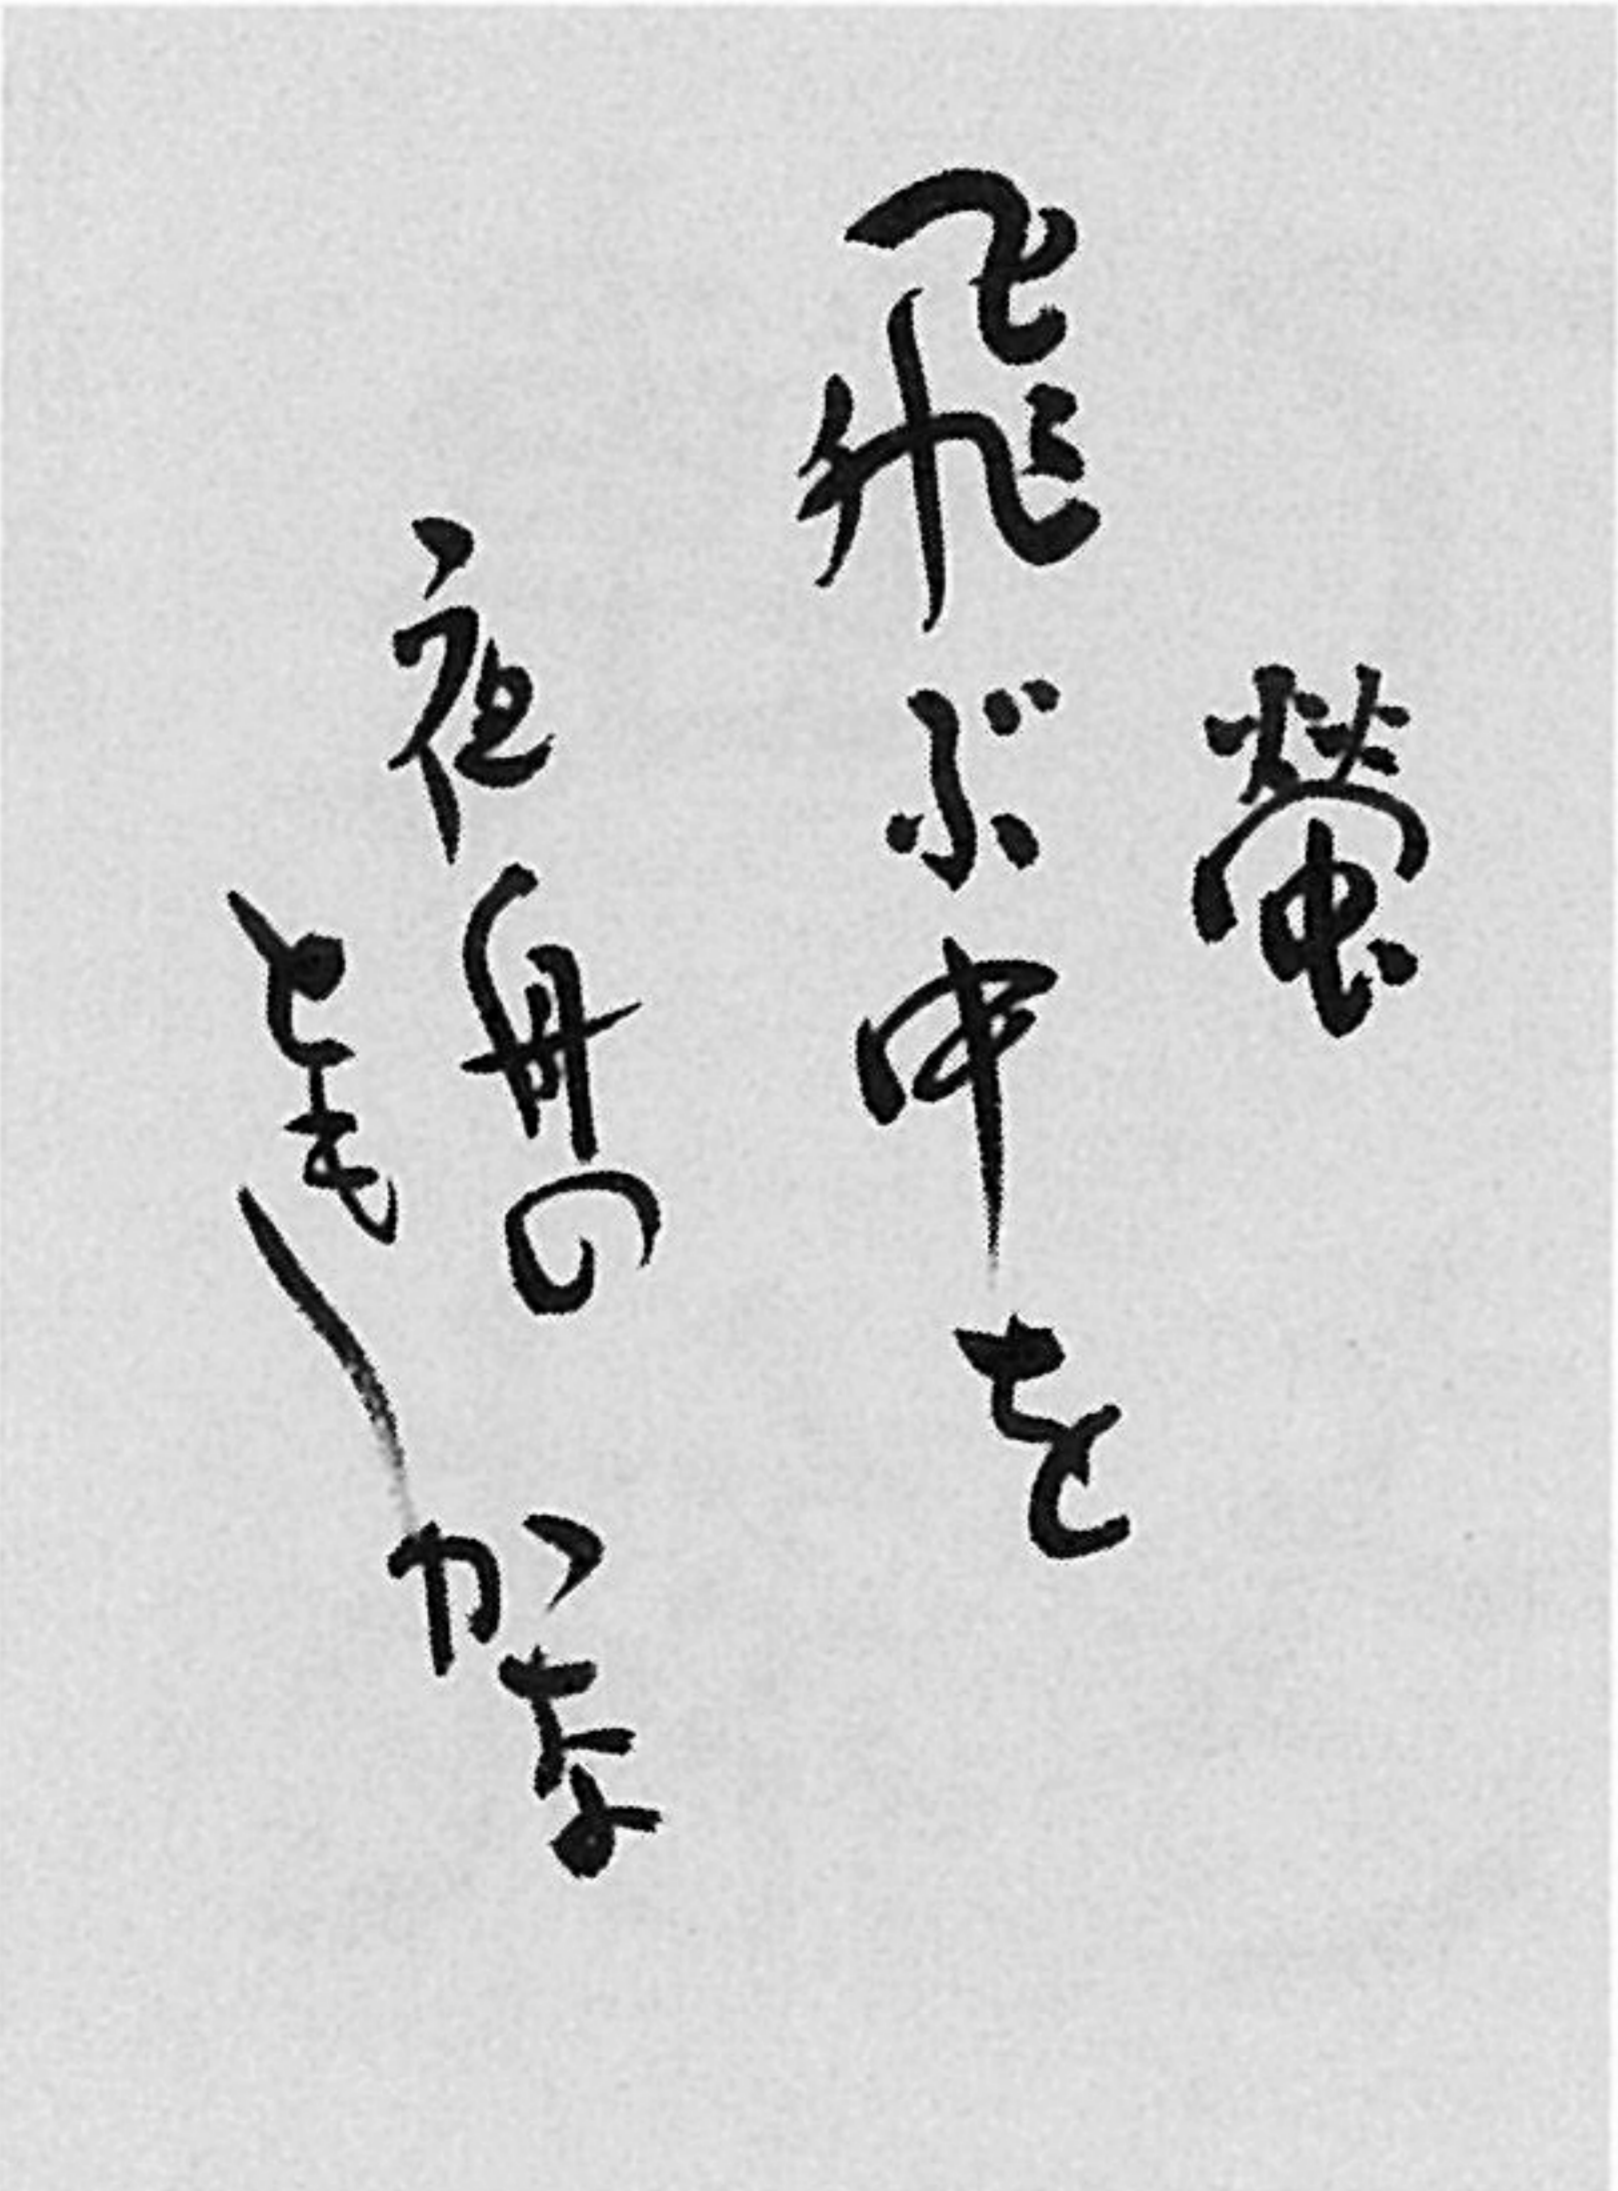 螢
飛ぶ中を
夜舟の
ともしかな